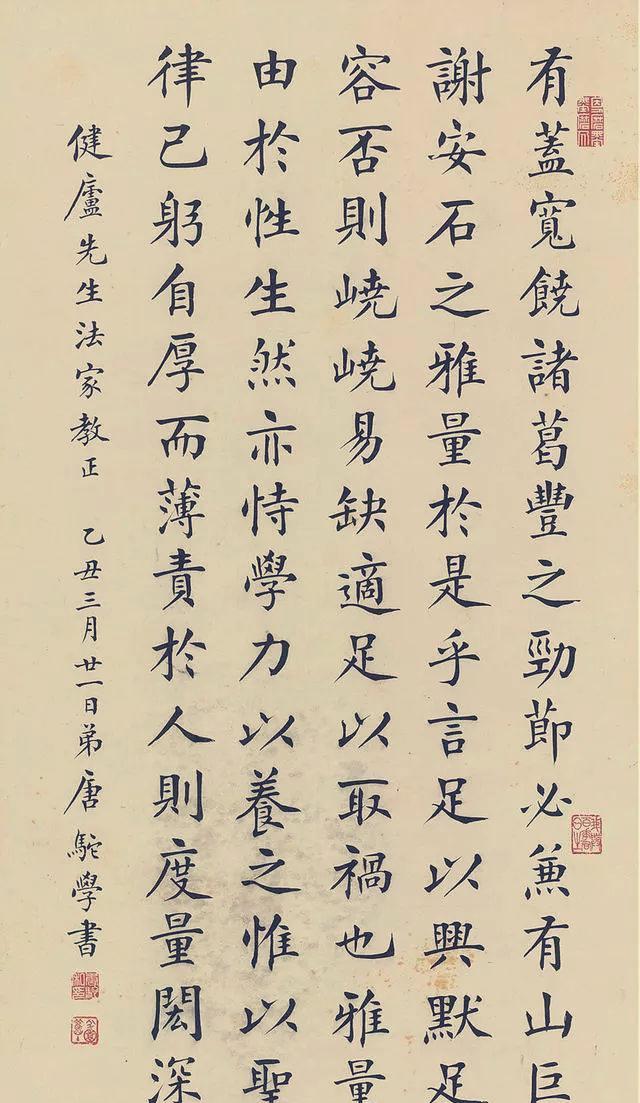 有蓋寬饒諸葛豐之勁節必兼有山巨
謝安石之雅量於是乎言足以興默足
容否則嶢嶢易缺適足以取禍也雅量
由於性生然亦恃學力以養之惟以聖
律己躬自厚而薄責於人則度量閎深
健廬先生法家教正 乙丑三月廿一日弟唐駝學書